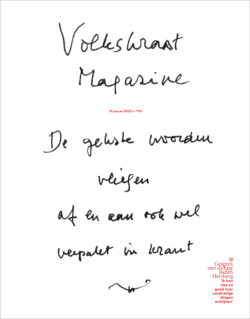 Volkskrant
Magazine
De gekste woorden
vliegen
af en aan ook wel
verpakt in krant
12
Gesprek
met dichter
Judith
Herzberg
'Ik kan
niet zo
goed over
verdrietige
dingen
schrijven'